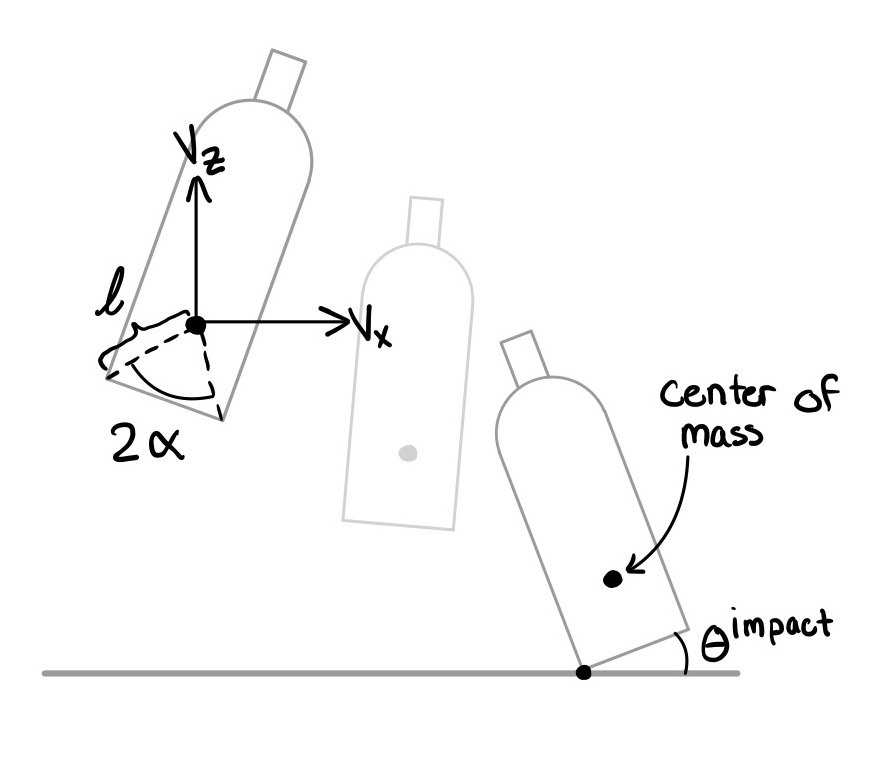 Vz
l
Vx
2α
center of
mass
θ^impact